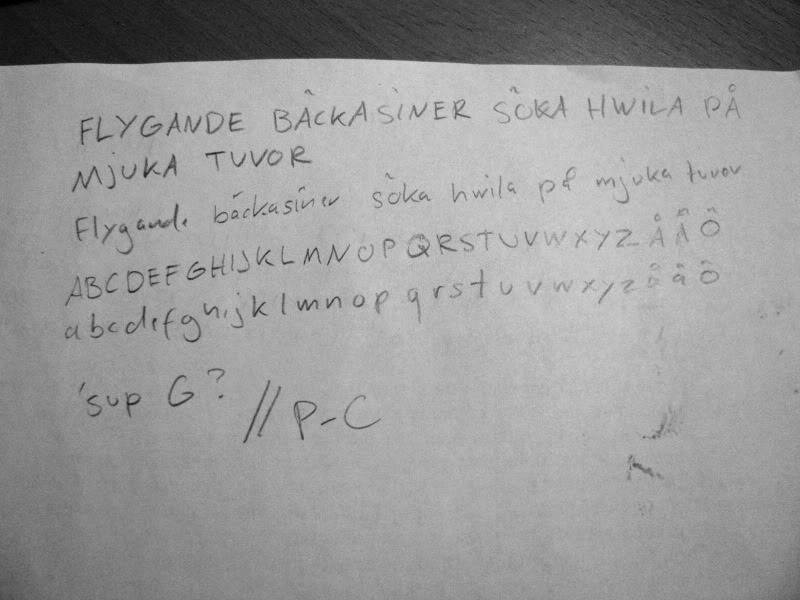 FLYGANDE BÄCKASINER SÖKA HWILA PÅ
MJUKA TUVOR
Flygande bäckasiner söka hwila på mjuka tuvor
ABCDEFGHIJKLMNOPQRSTUVWXYZÅÄÖ
abcdefghijklmnopqrstuvwxyzåäö
'sup G? //P-C